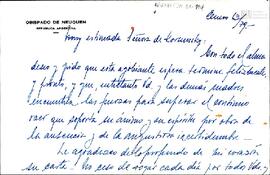 OBISPADO DE NEUQUEN
REPUBLICA ARGENTINA
Enero 13/79.-
Muy estimada Señora de Lorusso:
Con toda el alma
deseo y pido que esta agobiante espera termine felizmente
y pronto, y que, entretanto Ud. y las demás madres
encuentren las fuerzas para superar el
que soporta su ánimo y su espíritu por obra de
la ausencia y de la angustiosa incertidumbre.-
Le agradezco de lo profundo de mi corazón
su carta. No ceso de rogar cada día por todos Uds. y